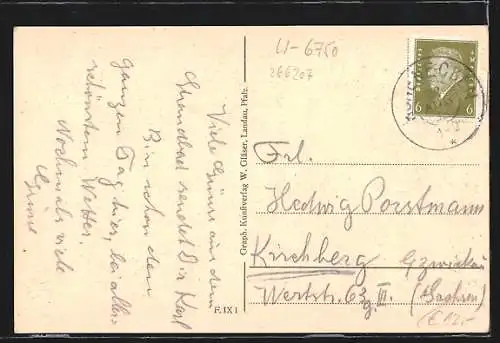 LI-6750
266207
Viele Grüsse aus dem
Strandbad sendet Dir Karl
Bin schon den
ganzen Tag hier, bei aller-
schönstem Wetter.
Nochmals viele
Grüsse
F. IX 1
Graph. Kunstverlag W. Gläser, Landau, Pfalz.
6 6
Frl.
Hedwig Porstmann
Kirchberg b. Zwickau
Werkstr. 63 III. (Sachsen)